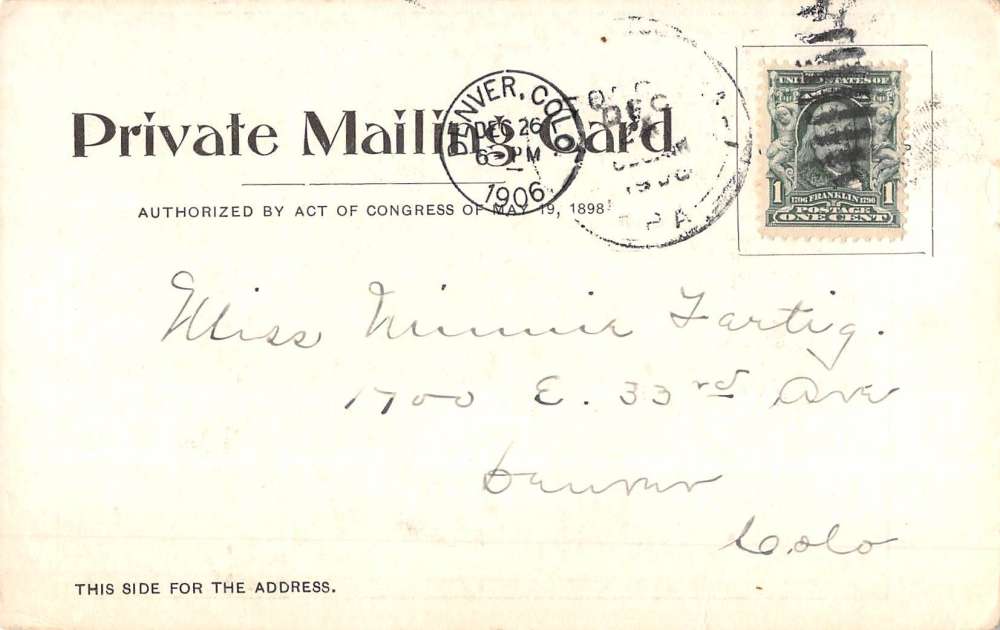 Private Mailing Card.
AUTHORIZED BY ACT OF CONGRESS OF MAY 19, 1898.
DENVER, COLO.
DEC 26
6 - PM
1906
DEC
PA
UNITED STATES OF AMERICA
1 1796 FRANKLIN 1790 1
POSTAGE
ONE CENT
Miss Minnie Fartig.
1700 E. 33rd Ave
Denver
Colo
THIS SIDE FOR THE ADDRESS.